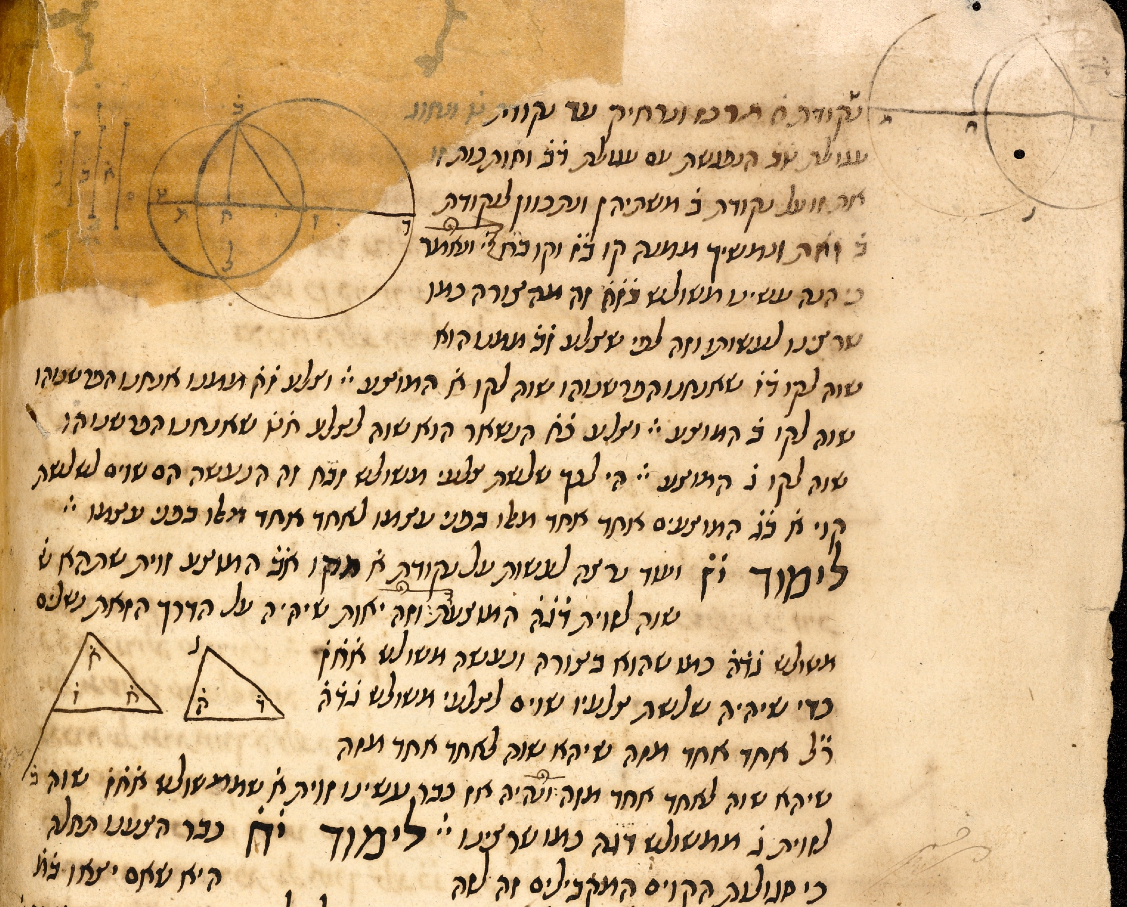 נקודת א מרכז ונרחיק עד נקודת
עגולת הב הנפגשת עם עגולת דב וחותכות זו
את זו על נקודת ב משתיהן ונתכוון לנקודת
ב זאת ונמשיך ממנה קו בז וקו בח ונאמר
כי הנה עשינו משולש בזח זה מהצורה כמו
שרצינו לעשותו וזה לפי שצלע זב ממנו הוא
שוה לקו דז שאנחנו הפרשנוהו שוה לקו א המוצע וצלע זח ממנו אנחנו הפרשנוהו
שוה לקו ב המוצע וצלע בח הנשאר הוא שוה לצלע חט שאנחנו הפרשנוהו
שוה לקו ג המוצע הי לכך שלשת צלעי משולש זבח זה הנעשה הם שוים לשלשת
קוי א בג המוצעים אחד אחד מאלו בפני עצמו לאחד אחד מאלו בפני עצמו
לימוד יז ועוד נרצה לעשות על נקודת א מקו אב המוצע זוית שתהא
שוה לזוית דגה המוצעת וזה יאות שיהיה על הדרך הזאת נשלים
משולש גדה כמו שהוא בצורה ונעשה משולש אחז
כדי שיהיה שלשת צלעיו שוים לצלעי משולש גדה
ר״ל אחד אחד מזה שיהא שוה לאחד אחד מזה
שיהא שוה לאחד אחד מזה ויהיה אז כבר עשינו זוית א שממשולש אחז שוה
לזוית ג ממשולש דגה כמו שרצינו לימוד יח כבר הצענו תחלה
כי סגולת הקוים המקבילים זה לזה היא שאם יצאו